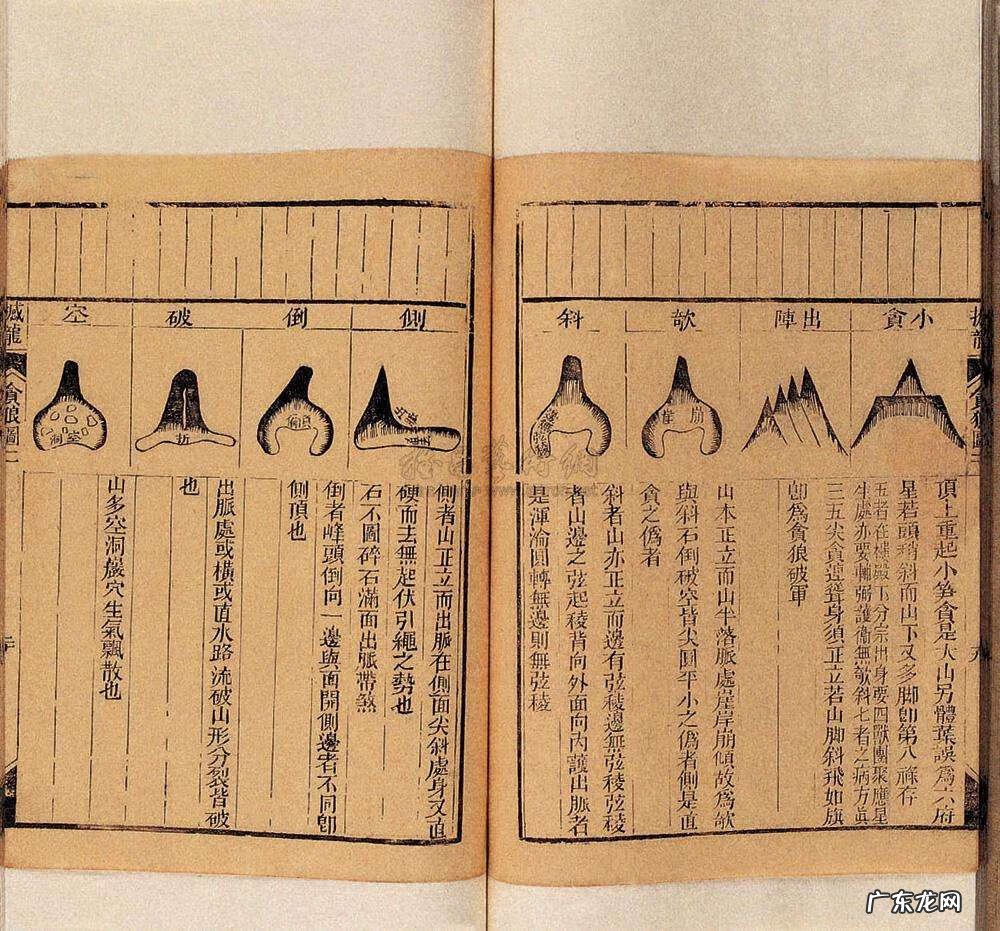 小貪
出陣
欹
斜
頂上重起小笋貪是大山另體葉誤為六府
星若頭稍斜而山下又多脚卽第八祿存
五者在樓殿下分宗出身要四獸團聚應星
生處亦要輔弼護衛無欹斜七者之病方眞
三五尖貪連聳身須正立若山脚斜飛如旗
卽為貪狼破軍
山本正立而山半落脈處崖岸崩傾故為欹
與斜石倒破空皆尖圓平小之僞者側是直
貪之僞者
斜者山亦正立而邊有弦稜邊無弦稜弦稜
者山邊之弦起稜背向外面向內護出脈者
是渾淪圓轉無邊則無弦稜
崩
側
倒
破
空
側者山正立而出脈在側面尖斜處身又直
硬而去無起伏引繩之勢也
石不圖碎石滿面出脈帶煞
倒者峰頭倒向一邊與面開側邊者不同卽
側頂也
出脈處或橫或直水路流破山形分裂皆破
也
山多空洞巖穴生氣飄散也
折
空
洞
撼龍
貪狼圖
廣东龙网